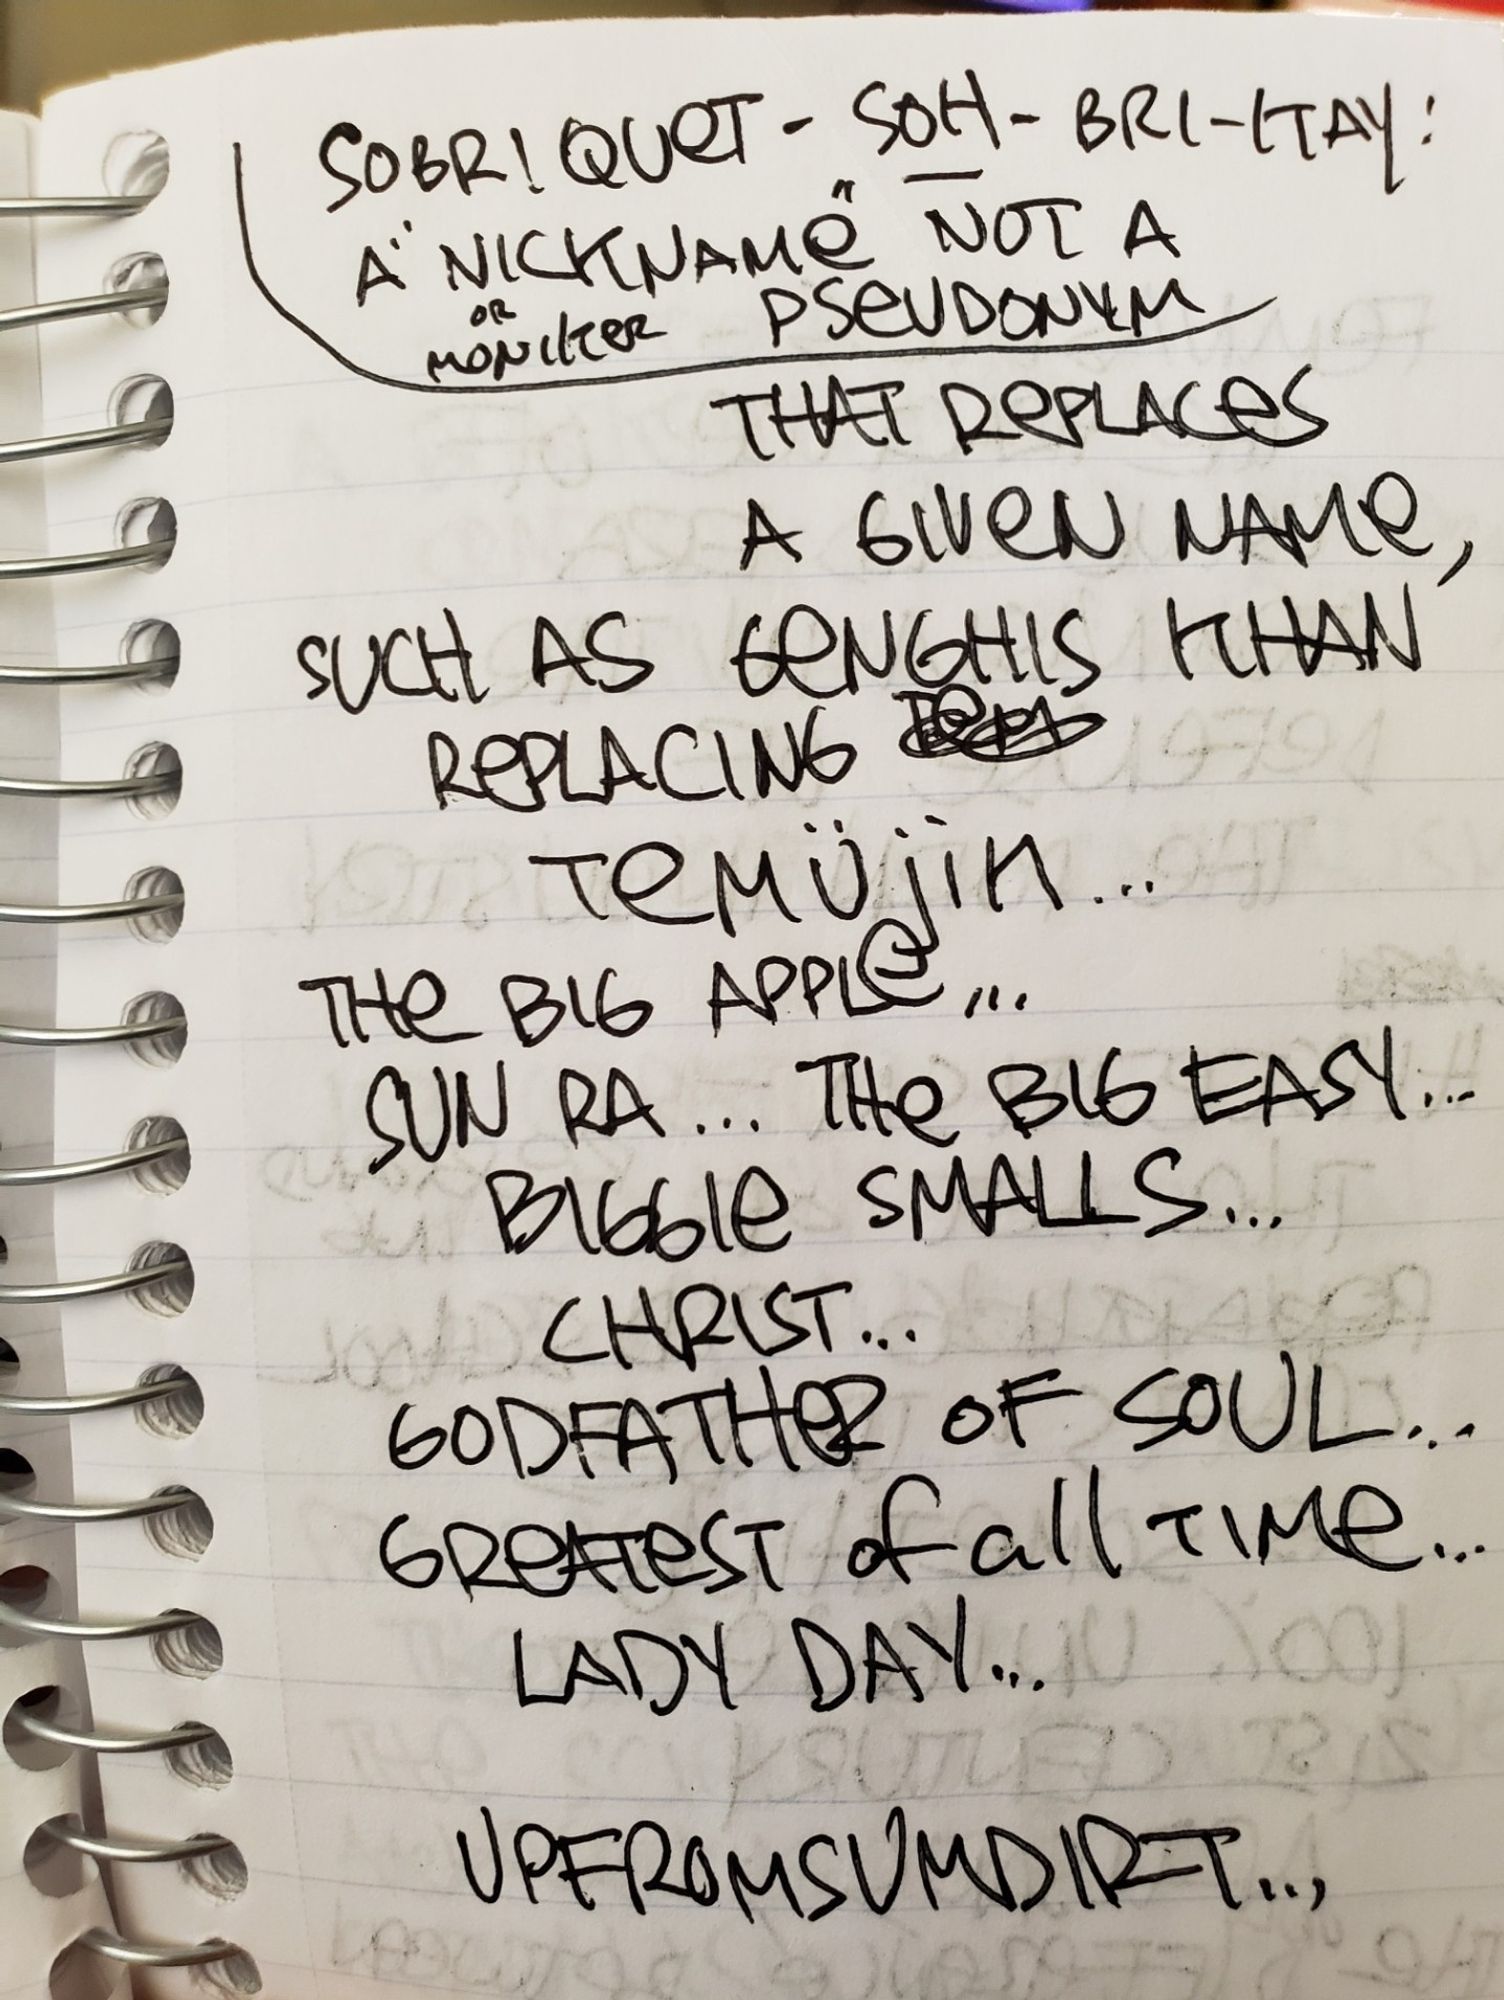 SOBRIQUET - SOH - BRI - KAY:
A "NICKNAME" NOT A
OR
MONIKER PSEUDONYM
THAT REPLACES
A GIVEN NAME,
SUCH AS GENGHIS KHAN
REPLACING
TEMÜjin...
THE BIG APPLE...
SUN RA... THE BIG EASY...
BIGGIE SMALLS...
CHRIST...
GODFATHER OF SOUL...
GREATEST of all TIME...
LADY DAY...
UPFROMSUMDIRT...